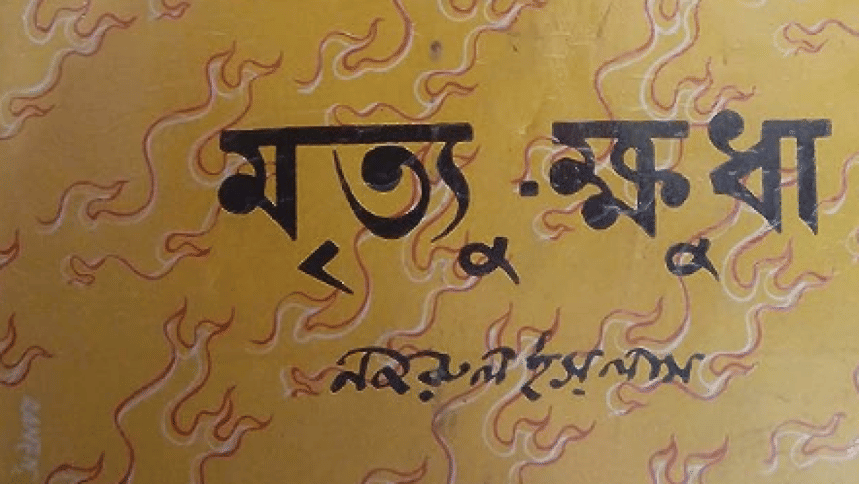 মৃত্যু-ক্ষুধা
নজরুল ইসলাম